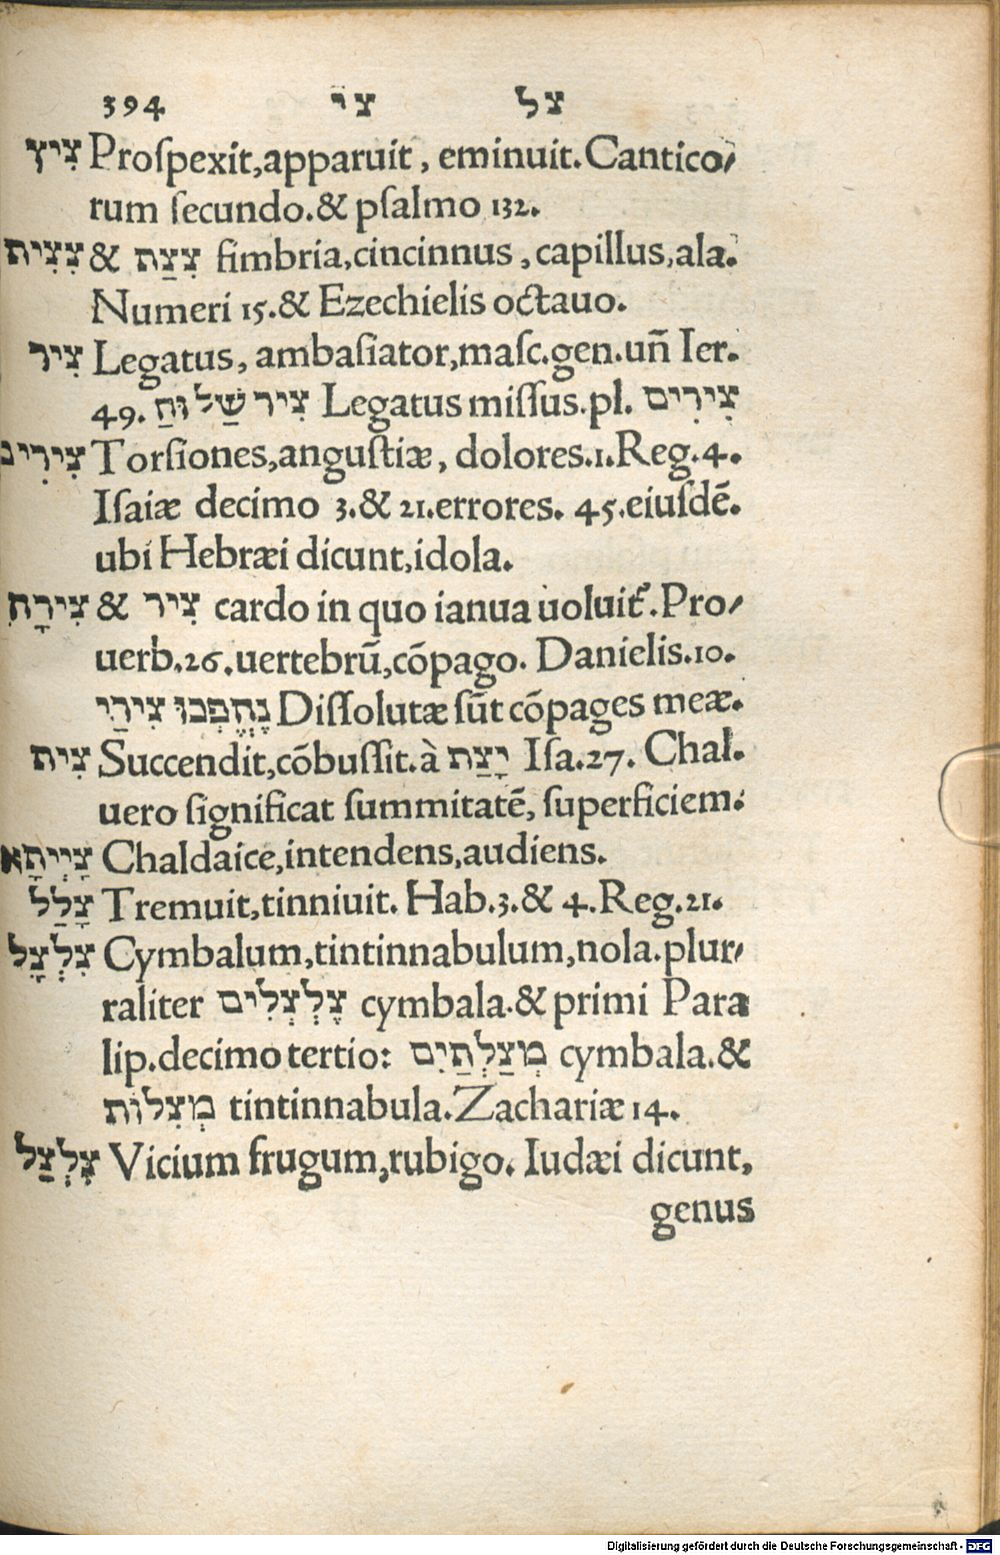 394 צי צל
צִיץ Proſpexit,apparuit, eminuit.Cantico⸗
rum ſecundo.& pſalmo 132.
צִצִית & צִצַת fimbria,cincinnus,capillus,ala.
Numeri 15.& Ezechielis octauo.
צִיר Legatus, ambaſiator,maſc.gen.uñ Ier.
49. צִיר שַׁלוּחַ Legatus miſſus.pl. צִירִים
צִירִים Torſiones,anguſtiæ, dolores.1.Reg.4.
Iſaiæ decimo 3.& 21.errores. 45.eiuſdē.
ubi Hebræi dicunt,idola.
צִירָה & צִיר cardo in quo ianua uoluit᷒.Pro⸗
uerb.26.uertebrū,cōpago. Danielis.10.
נֶהֶפְכוּ צִירַי Diſſolutæ ſūt cōpages meæ.
צִית Succendit,cōbuſſit.à יָצַת Iſa.27. Chal.
uero ſignificat ſummitatē, ſuperficiem.
צָיְיתָא Chaldaice,intendens,audiens.
צָלַל Tremuit,tinniuit. Hab.3.& 4.Reg.21.
צִלְצָל Cymbalum,tintinnabulum,nola.plur⸗
raliter צֶלְצְלִים cymbala.& primi Para
lip.decimo tertio: מְצַלְתַּיִם cymbala.&
מְצִלוֹת tintinnabula.Zachariæ 14.
צָלְצַל Vicium frugum,rubigo. Iudæi dicunt,
genus
Digitalisierung gefördert durch die Deutsche Forschungsgemeinschaft - DFG